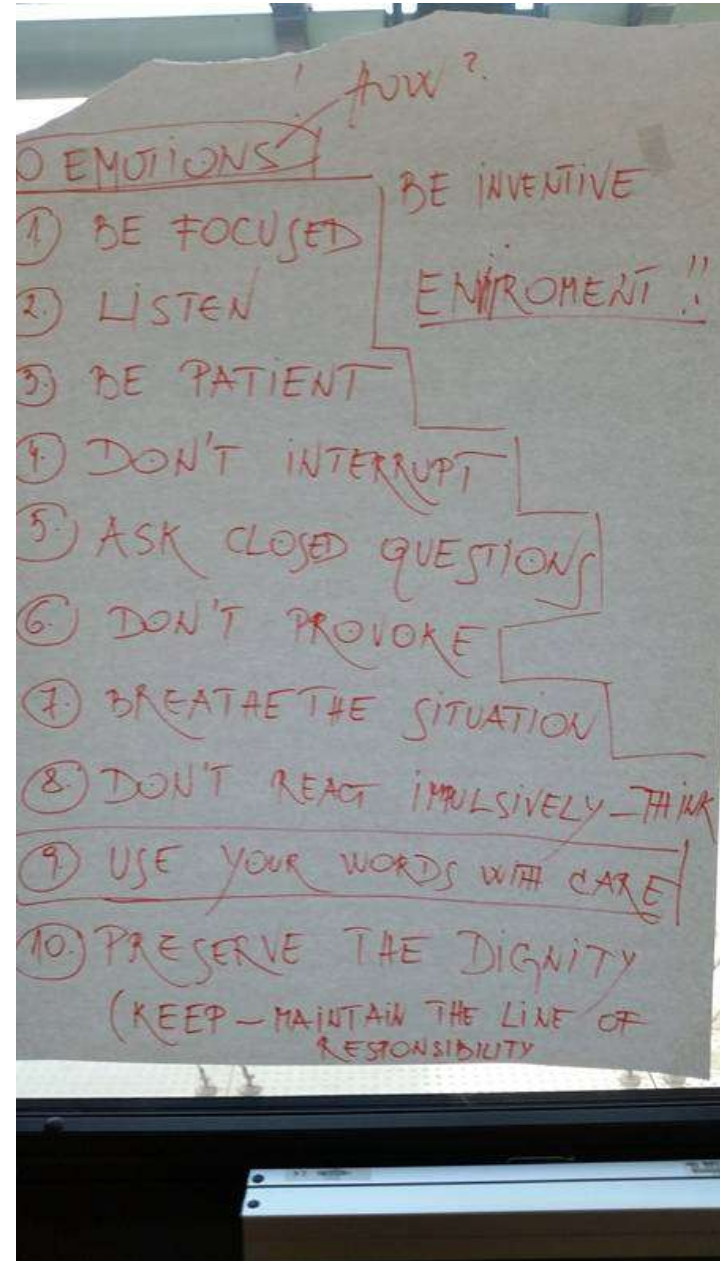 ! HOW?
O EMOTIONS
BE INVENTIVE
ENVIROMENT !!
1) BE FOCUSED
2.) LISTEN
3.) BE PATIENT
4.) DON'T INTERRUPT
5.) ASK CLOSED QUESTIONS
6.) DON'T PROVOKE
7.) BREATHE THE SITUATION
8.) DON'T REACT IMPULSIVELY – THINK
9.) USE YOUR WORDS WITH CARE
10.) PRESERVE THE DIGNITY
(KEEP – MAINTAIN THE LINE OF
RESPONSIBILITY